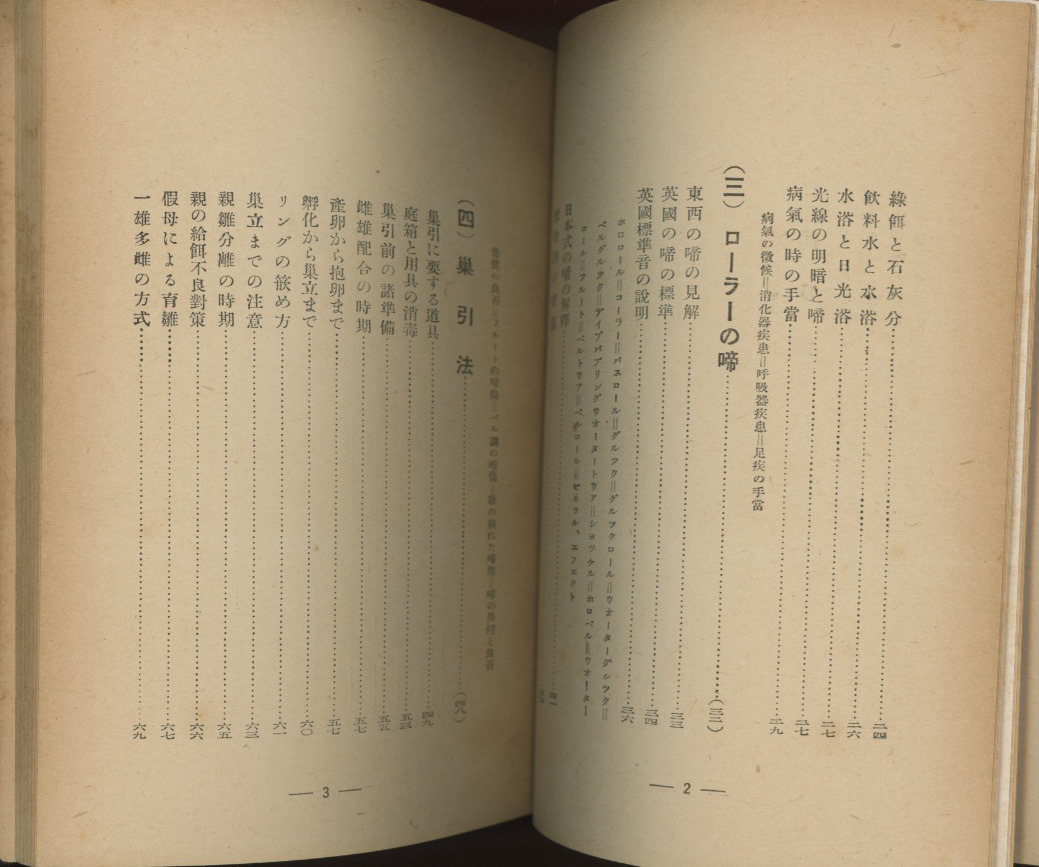 綠餌と石灰分……二四
飮料水と水浴……二六
水浴と日光浴……二六
光線の明暗と啼……二七
病氣の時の手當……二七
病氣の徵候＝消化器疾患＝呼吸器疾患＝足疾の手當……二九
（三）ローラーの啼……（三二）
東西の啼の見解……三三
英國の啼の標準……三四
英國標準音の說明……三六
ホロロール＝コーラー＝バスロール＝グルツク＝グルツクロール＝ウオーターグルツク＝
ベルグルツク＝デイプバブリングウオータートウアー＝シヨツケル＝ホロベル＝ウオーター
ロール＝フルート＝ベルトウアー＝ベルロール＝ゼネラル、エフエクト
日本式の啼の解釋
（四）巢引法……（四八）
巢引に要する道具……四九
庭箱と用具の消毒……五三
巢引前の諸準備……五五
雌雄配合の時期……五七
產卵から抱卵まで……五七
孵化から巢立まで……六〇
リングの篏め方……六一
巢立までの注意……六三
親雛分離の時期……六五
親の給餌不良對策……六六
假母による育雛……六七
一雄多雌の方式……六九
2
3